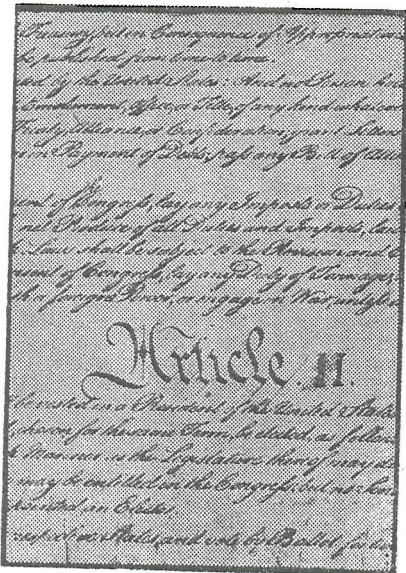 Treasury, but in Consequence of Appropriation
be published from time to time.
ed by the United States: And no Person hold
Emolument, Office, or Title, of any kind whatever
Treaty, Alliance, or Confederation; grant Letters
in Payment of Debts; pass any Bill of Atta
ent of Congress, lay any Imposts or Duties
net Produce of all Duties and Imposts, laid
Laws shall be subject to the Revision and C
nsent of Congress, lay any Duty of Tonnage,
h a foreign Power, or engage in War, unless
Article. II.
be vested in a President of the United States
chosen for the same Term, be elected, as follows
Manner as the Legislature thereof may di
may be entitled in the Congress: but no Sena
pointed an Elector.
respective States, and vote by Ballot for two